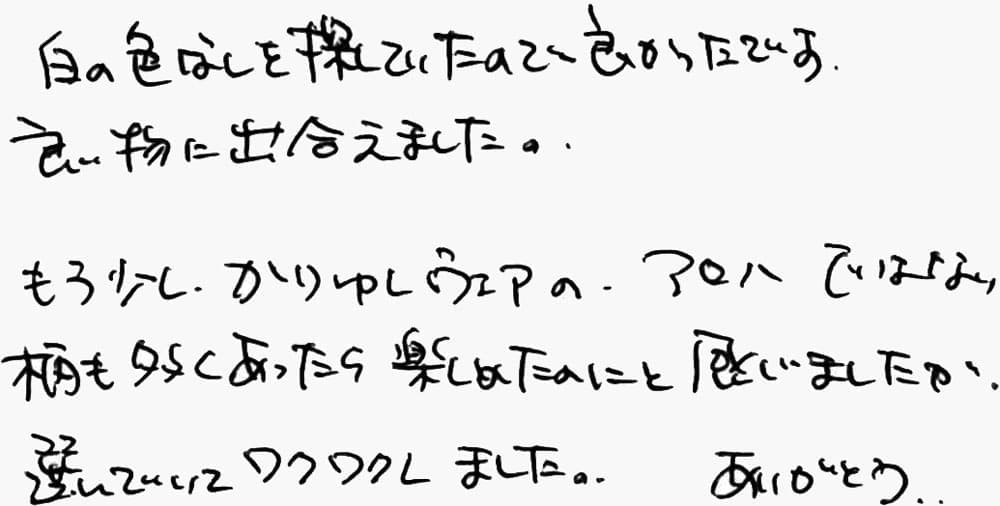 白の色を探していたので良かったです.
良い物に出合えました。.
もう少し.かりゆしウェアの.アロハではない
柄も多くあったら楽しめたのにと思いましたが、
選んでいてワクワクしました。. ありがとう..